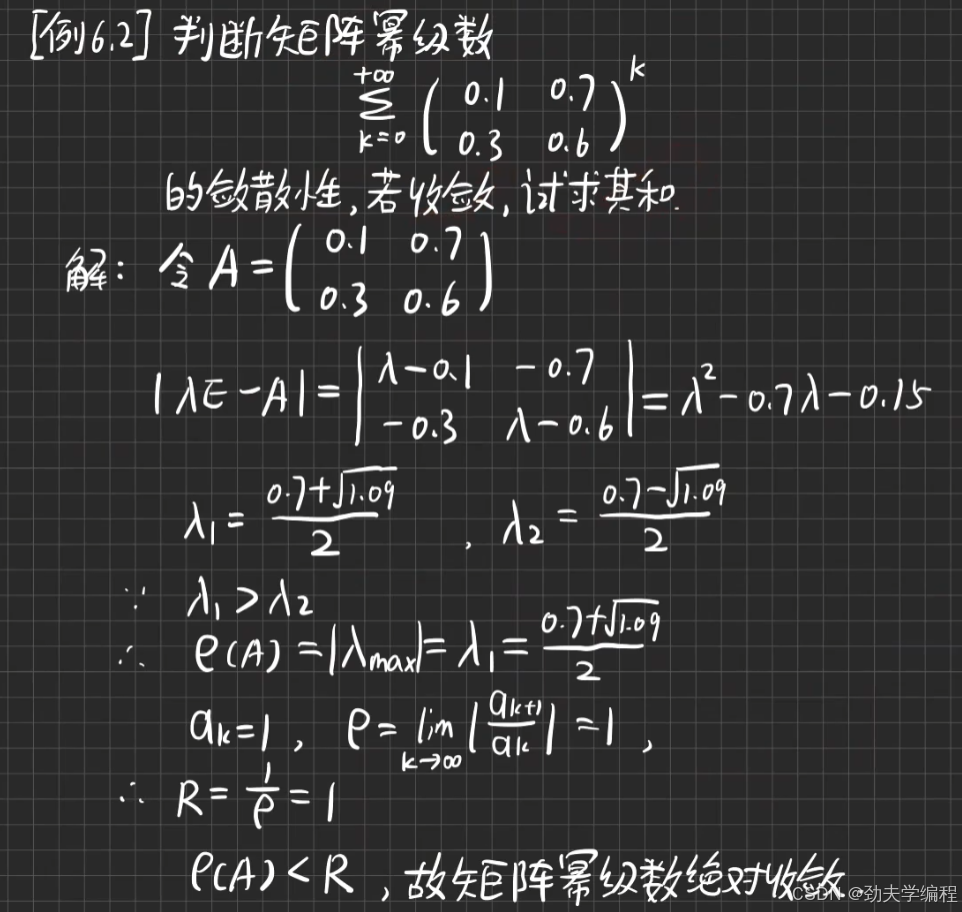 [例6.2] 判断矩阵幂级数
$\sum_{k=0}^{+\infty} \begin{pmatrix} 0.1 & 0.7 \\ 0.3 & 0.6 \end{pmatrix}^k$
的敛散性,若收敛,试求其和.
解: 令 $A = \begin{pmatrix} 0.1 & 0.7 \\ 0.3 & 0.6 \end{pmatrix}$
$|\lambda E - A| = \begin{vmatrix} \lambda - 0.1 & -0.7 \\ -0.3 & \lambda - 0.6 \end{vmatrix} = \lambda^2 - 0.7\lambda - 0.15$
$\lambda_1 = \frac{0.7+\sqrt{1.09}}{2}$ , $\lambda_2 = \frac{0.7-\sqrt{1.09}}{2}$
∵ $\lambda_1 > \lambda_2$
∴ $\rho(A) = |\lambda_{max}| = \lambda_1 = \frac{0.7+\sqrt{1.09}}{2}$
$a_k = 1$ , $\rho = \lim_{k \to \infty} \left| \frac{a_{k+1}}{a_k} \right| = 1$ ,
∴ $R = \frac{1}{\rho} = 1$
$\rho(A) < R$ , 故矩阵幂级数绝对收敛.
CSDN @劲夫学编程